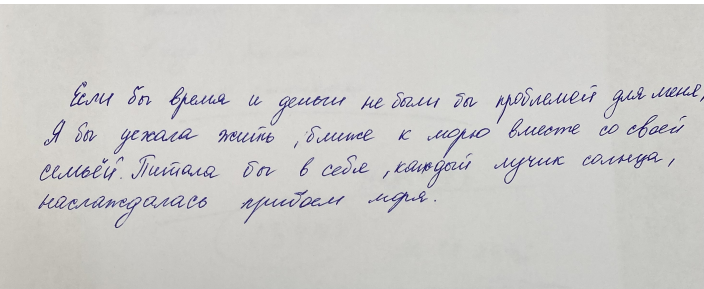 Если бы время и деньги не были бы проблемой для меня,
Я бы уехала жить, ближе к морю вместе со своей
семьёй. Питала бы в себя, каждый лучик солнца,
наслаждалась прибоем моря.